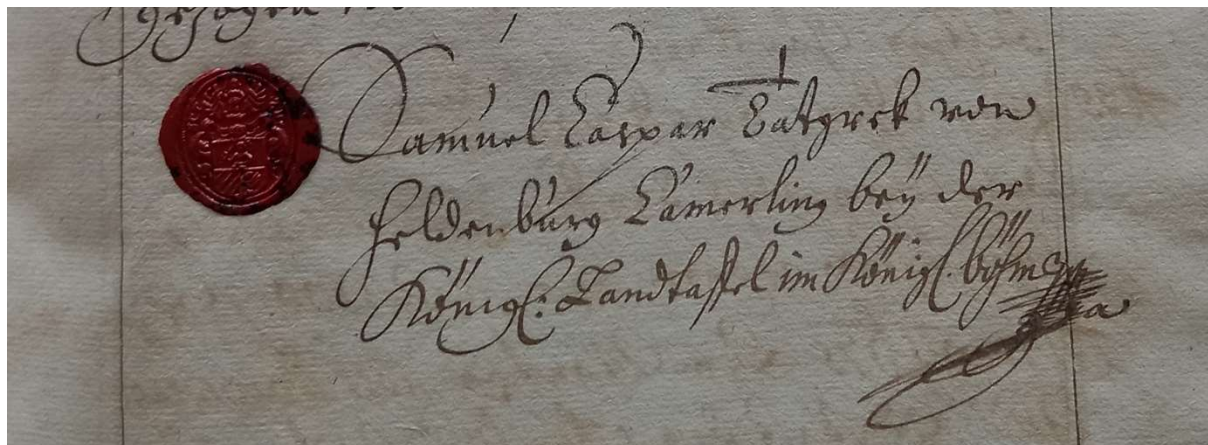 Samuel Caspar von
Heldenburg Camerling beÿ der
Königl. Landtaffel im Königl. böhm